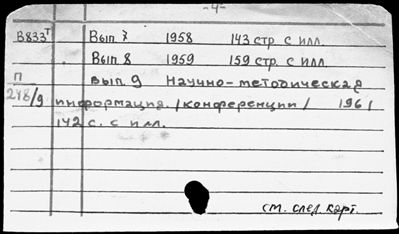 -4-
В833т Вып 7 1958 143 стр. с илл.
Вып 8 1959 159 стр. с илл.
П вып 9 Научно-методическая
248/9 информация. /конференции/ 1961
142 с. с илл.
см. след карт.